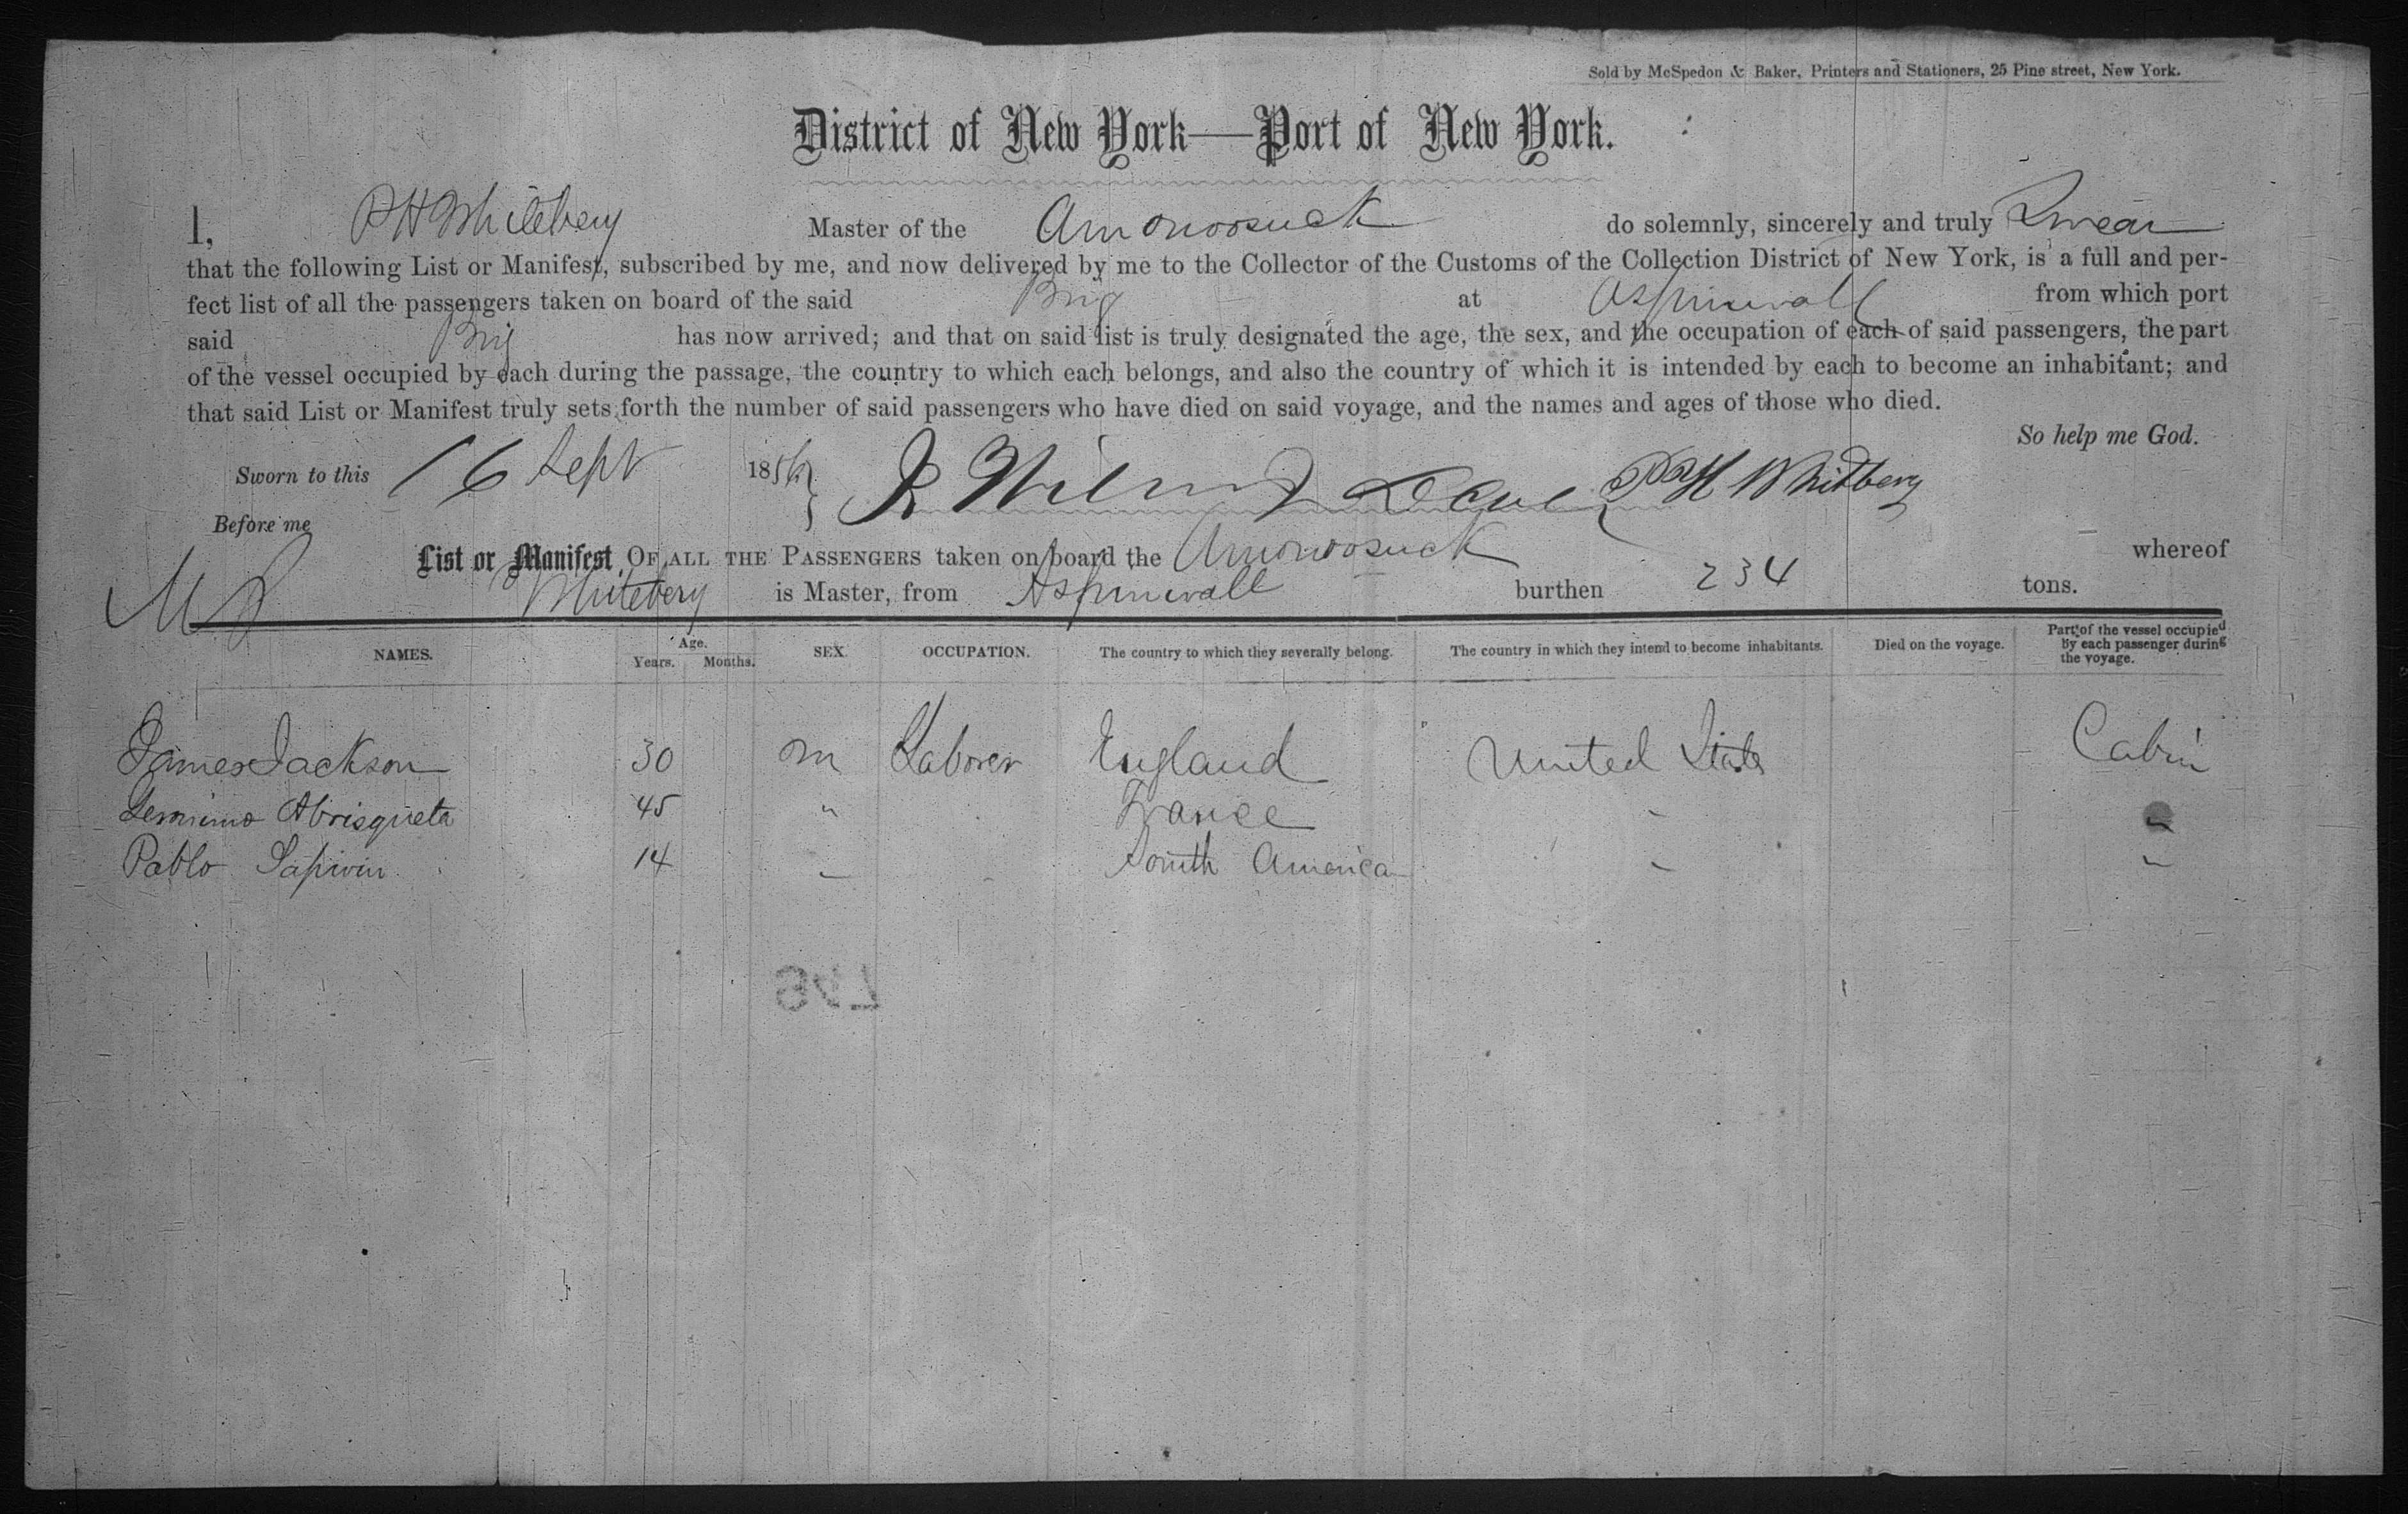 Sold by McSpedon & Baker, Printers and Stationers, 25 Pine street, New York.
District of New York—Port of New York.
I, P H Whitebery Master of the Amonoosuck do solemnly, sincerely and truly Swear
that the following List or Manifest, subscribed by me, and now delivered by me to the Collector of the Customs of the Collection District of New York, is a full and per-
fect list of all the passengers taken on board of the said Brig at Aspinwall from which port
said Brig has now arrived; and that on said list is truly designated the age, the sex, and the occupation of each of said passengers, the part
of the vessel occupied by each during the passage, the country to which each belongs, and also the country of which it is intended by each to become an inhabitant; and
that said List or Manifest truly sets forth the number of said passengers who have died on said voyage, and the names and ages of those who died.
So help me God.
Sworn to this 16 Sept 1856 P H Whitbery
Before me
List or Manifest OF ALL THE PASSENGERS taken on board the Amonoosuck whereof
Whitebery is Master, from Aspinwall burthen 234 tons.
NAMES. Age. Years. Months. SEX. OCCUPATION. The country to which they severally belong. The country in which they intend to become inhabitants. Died on the voyage. Part of the vessel occupied by each passenger during the voyage.
James Jackson 30 m Laborer England United States Cabin
Jeronimo Abrisqueta 45 " France " "
Pablo 14 " South America " "